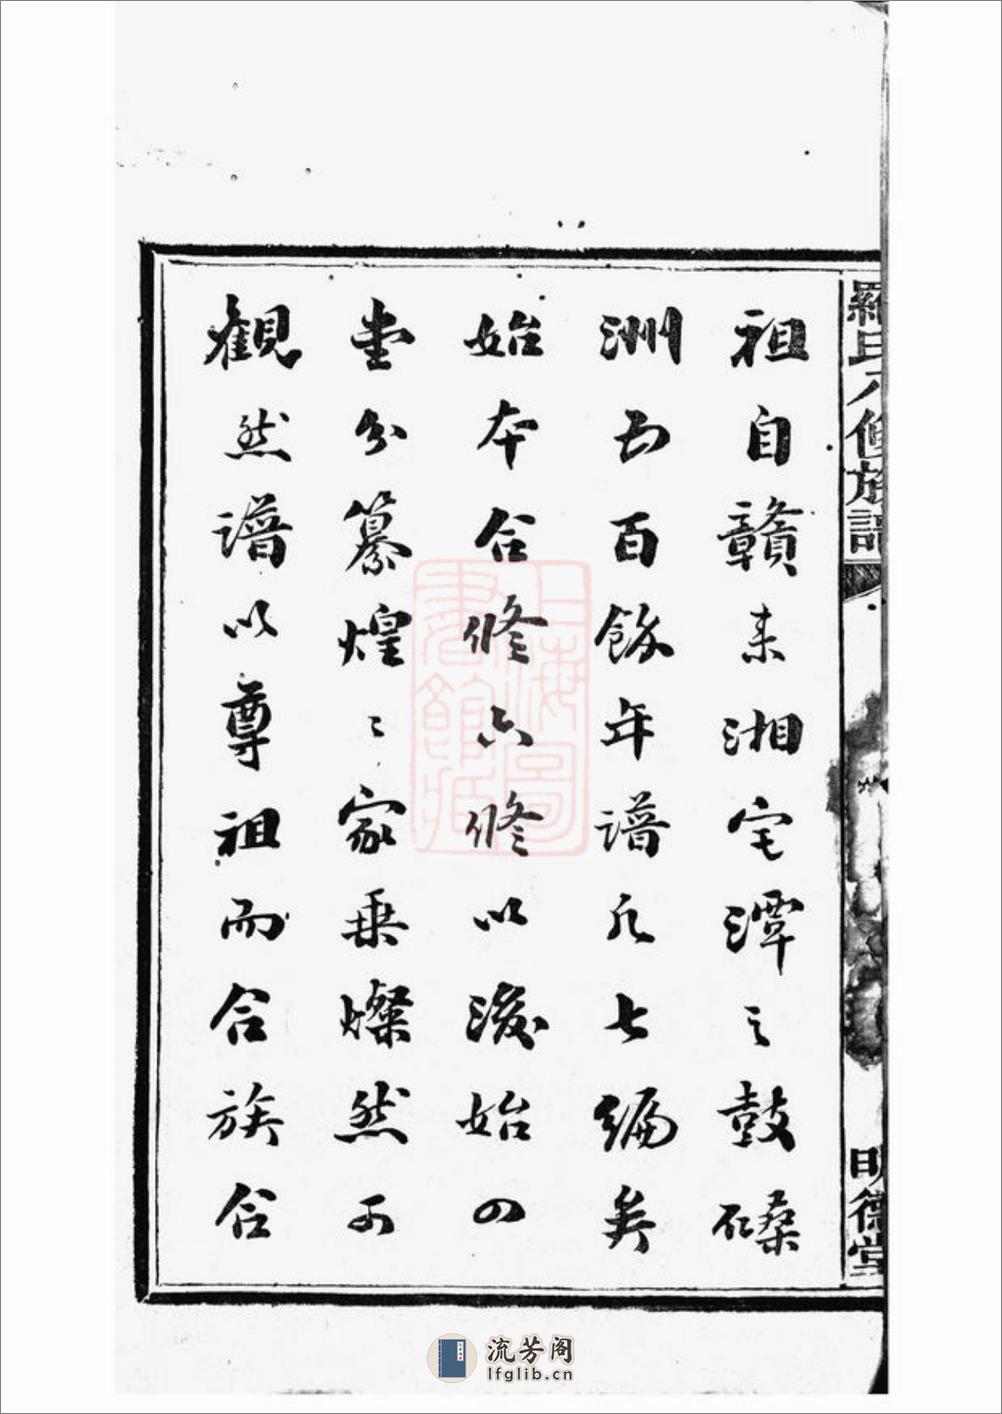 羅氏八修族譜
明德堂
祖自贛来湘宅潭之鼓磉
洲五百餘年譜凡七編矣
始本合修六修以後始四
堂分纂煌〻家乗燦然可
觀然譜以尊祖而合族合
上海圖書館藏
流芳阁
lfglib.cn